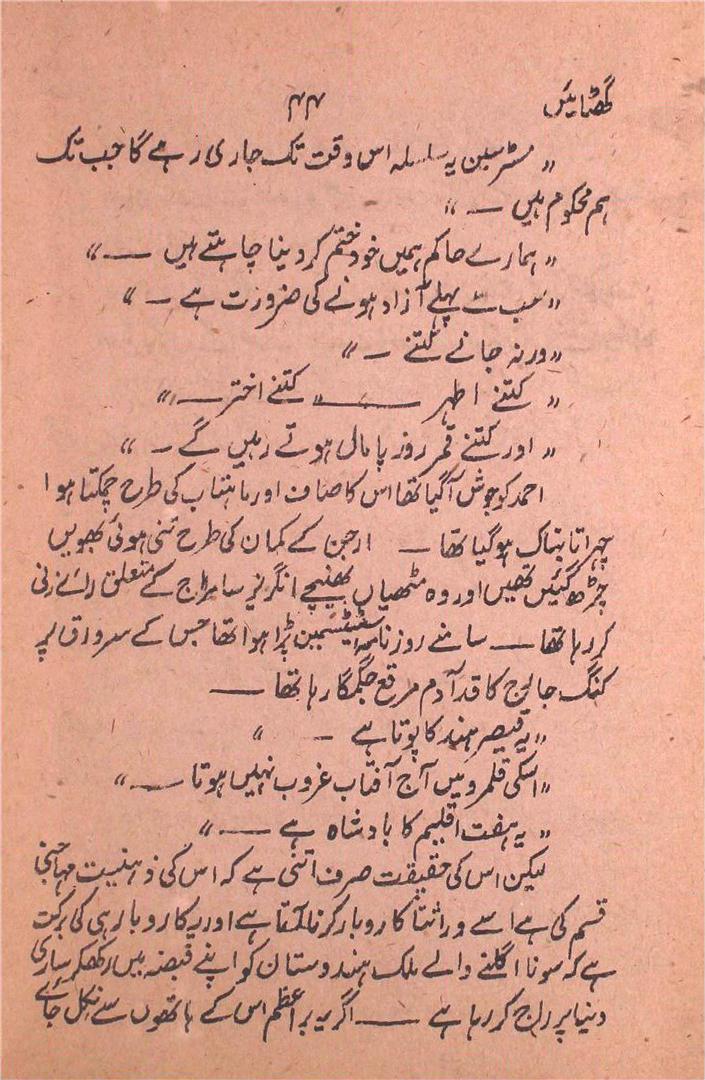 گھٹائیں ۴۴
" مسٹر سین یہ سلسلہ اس وقت تک جاری رہے گا جب تک
ہم محکوم ہیں — "
" ہمارے حاکم ہمیں خود ختم کر دینا چاہتے ہیں — "
" سب سے پہلے آزاد ہونے کی ضرورت ہے — "
" ورنہ جانے کتنے — "
" کتنے اطہر —— " کتنے اختر — "
" اور کتنے قمر روز پامال ہوتے رہیں گے — "
احمد کو جوش آگیا تھا اس کا صاف اور ماہتاب کی طرح چمکتا ہوا
چہرا تابناک ہو گیا تھا — ارجن کے کمان کی طرح تنی ہوئی بھویں
چڑھ گئیں تھیں اور وہ مٹھیاں بھینچے انگریز سامراج کے متعلق رائے زنی
کر رہا تھا — سامنے روزنامہ اسٹیٹسمین پڑا ہوا تھا جس کے سرورق پر
کنگ جارج کا قد آدم مرقع جگمگا رہا تھا —
" یہ قیصر ہند کا پوتا ہے — "
" اسکی قلمرو میں آج آفتاب غروب نہیں ہوتا — "
" یہ ہفت اقلیم کا بادشاہ ہے — "
لیکن اس کی حقیقت صرف اتنی ہے کہ اس کی ذہنیت مہاجنی
قسم کی ہے اسے وراثتاً کاروبار کرنا آتا ہے اور یہ کاروبار ہی کی برکت
ہے کہ سونا اگلنے والے ملک ہندوستان کو اپنے قبضہ میں رکھکر ساری
دنیا پر راج کر رہا ہے — اگر یہ بر اعظم اس کے ہاتھوں سے نکل جائے